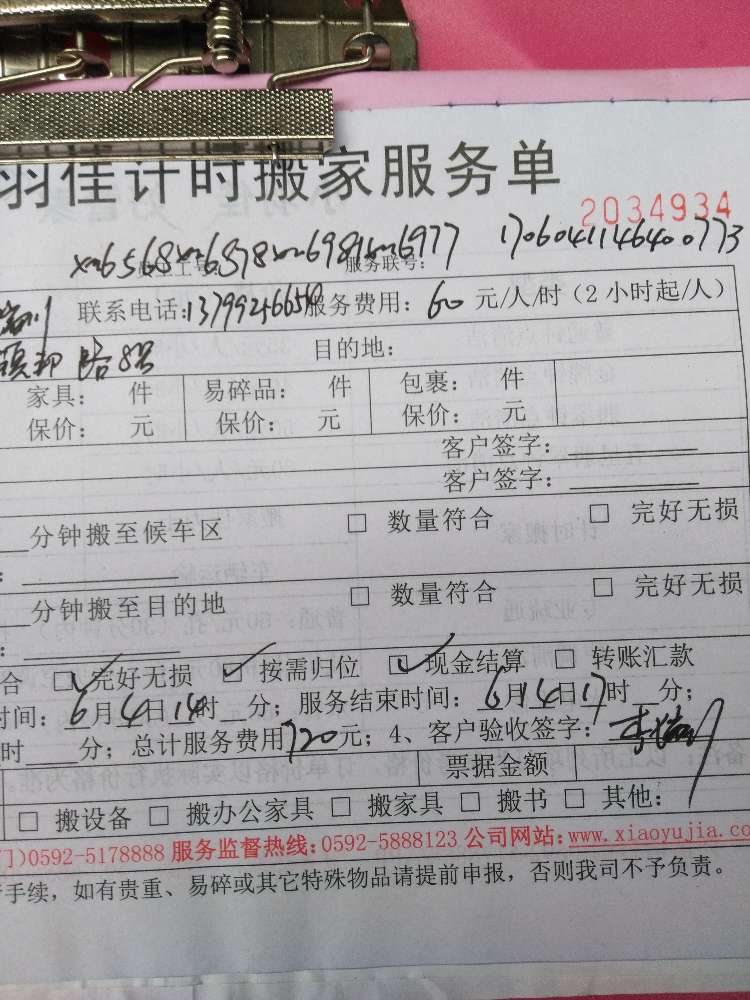 羽佳计时搬家服务单
2034934
xm6568xm6578xm6981xm6977 1706041146400773
员工工号: 服务联号:
联系电话: 服务费用: 60 元/人/时（2 小时起/人）
路 目的地:
家具: 件 易碎品: 件 包裹: 件
保价: 元 保价: 元 保价: 元
客户签字: ______
客户签字: ______
__分钟搬至候车区 □ 数量符合 □ 完好无损
: ______
__分钟搬至目的地 □ 数量符合 □ 完好无损
: ______
合 ☑ 完好无损 ☑ 按需归位 ☑ 现金结算 □ 转账汇款
时间: 6月4日14时__分; 服务结束时间: 6月4日17时__分;
时 __分; 总计服务费用720元; 4、客户验收签字:
票据金额
□ 搬设备 □ 搬办公家具 □ 搬家具 □ 搬书 □ 其他:
门)0592-5178888 服务监督热线:0592-5888123 公司网站:www.xiaoyujia.co
手续，如有贵重、易碎或其它特殊物品请提前申报，否则我司不予负责。